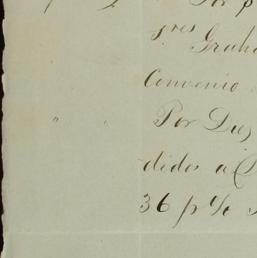 Por p
res Grah
Convenio
" " Por Die
didos a
36 p%